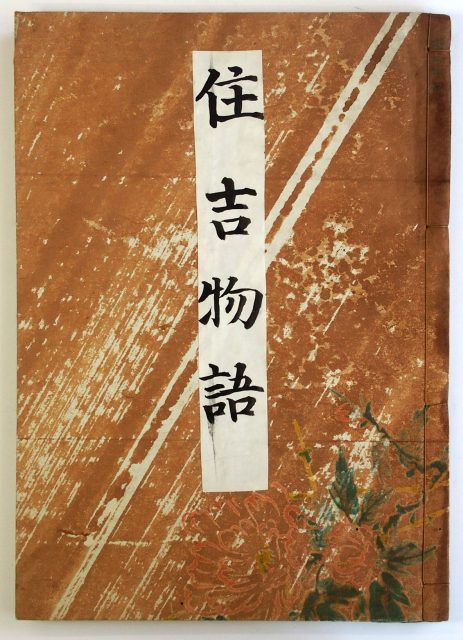 住吉物語